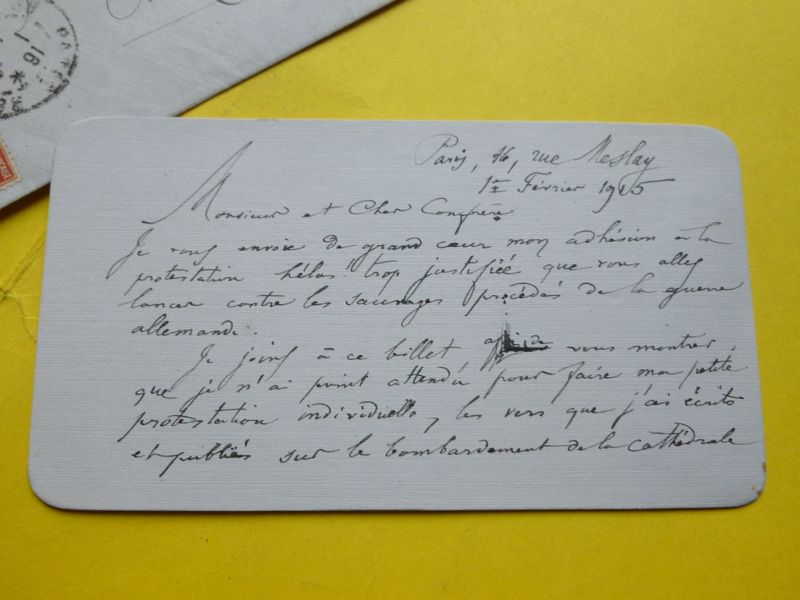 Paris, 16, rue Meslay
1er Février 1915
Monsieur et Cher Confrère
Je vous envoie de grand cœur mon adhésion à la
protestation hélas! trop justifiée que vous allez
lancer contre les sauvages procédés de la guerre
allemande.
Je joins à ce billet afin de vous montrer
que je n'ai point attendu pour faire ma petite
protestation individuelle, les vers que j'ai écrits
et publiés sur le bombardement de la cathédrale